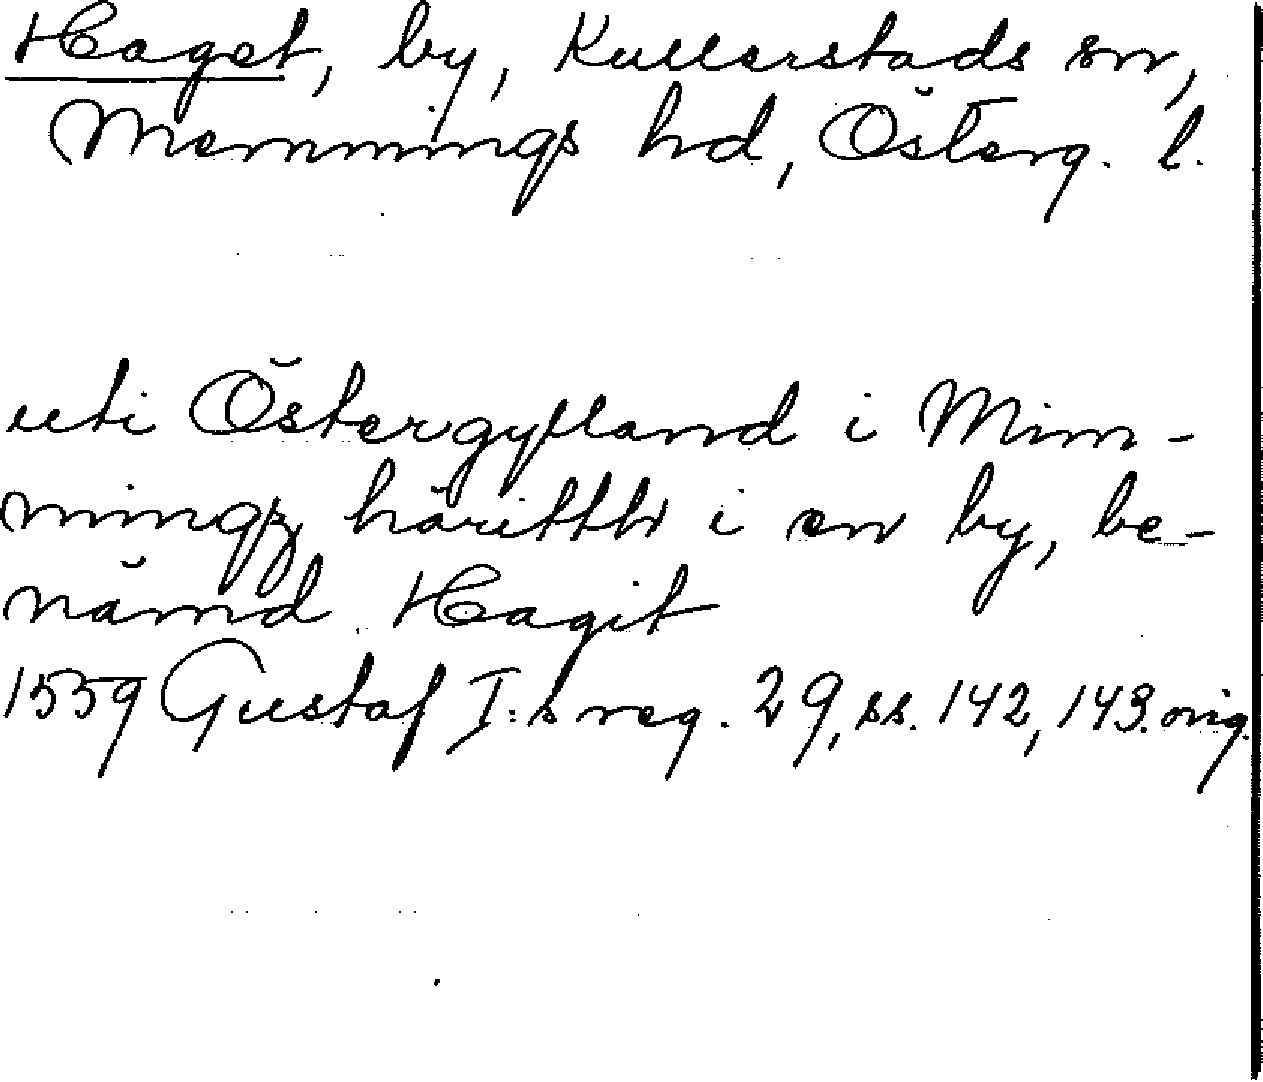 Haget, by, Kullerstads sn,
Memmings hd, Österg. l.
uti Östergylland i Mim-
mingz häritth i en by, be-
nämd Hagit
1559 Gustaf I:s reg. 29, ss. 142, 143. orig.